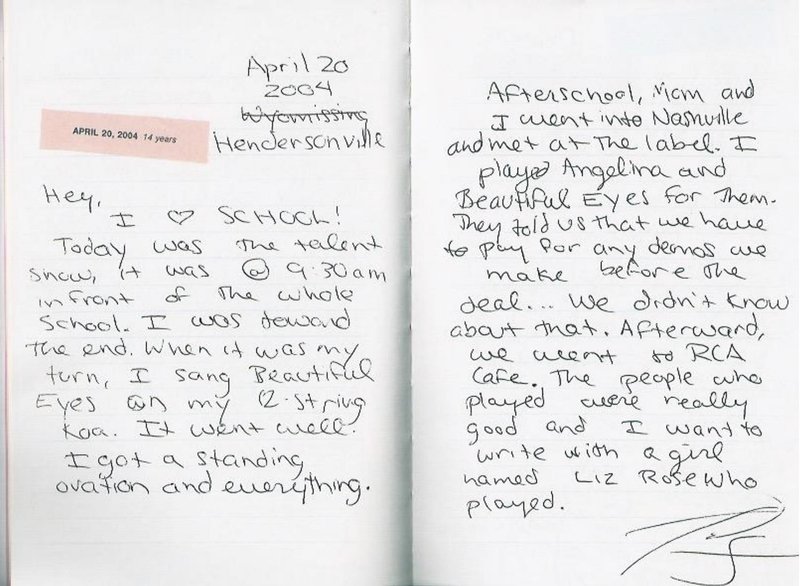 April 20
2004
Wyomissing
Hendersonville
APRIL 20, 2004 14 years
Hey,
I ♡ SCHOOL!
Today was the talent
show, it was @ 9:30am
infront of the whole
school. I was toward
the end. When it was my
turn, I sang Beautiful
Eyes on my 12-string
Koa. It went well.
I got a standing
ovation and everything.
Afterschool, Mom and
I went into Nashville
and met at the label. I
played Angelina and
Beautiful Eyes for them.
They told us that we have
to pay for any demos we
make before the
deal... We didn't know
about that. Afterward,
we went to RCA
Cafe. The people who
played were really
good and I want to
write with a girl
named Liz Rose who
played.